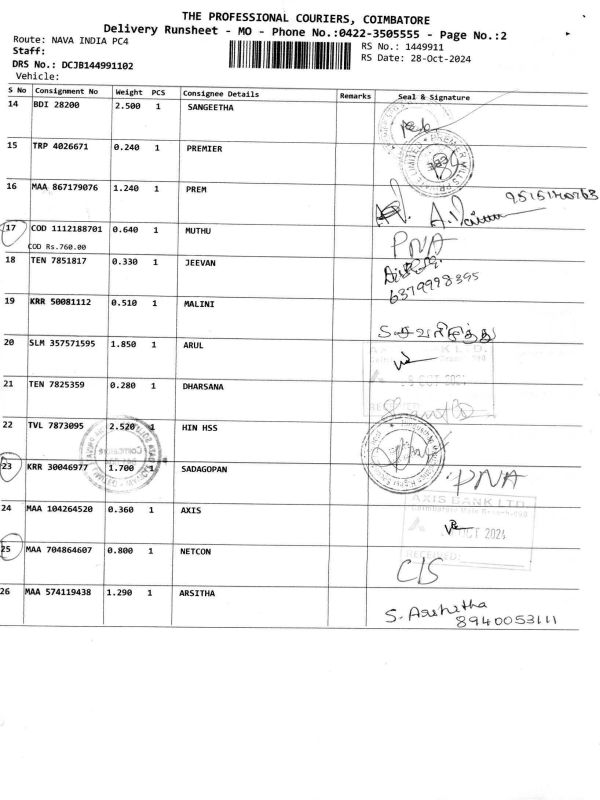 THE PROFESSIONAL COURIERS, COIMBATORE
Delivery Runsheet - MO - Phone No.:0422-3505555 - Page No.:2
Route: NAVA INDIA PC4
RS No.: 1449911
Staff:
RS Date: 28-Oct-2024
DRS No.: DCJB144991102
Vehicle:
S No Consignment No Weight PCS Consignee Details Remarks Seal & Signature
14 BDI 28200 2.500 1 SANGEETHA
15 TRP 4026671 0.240 1 PREMIER
16 MAA 867179076 1.240 1 PREM
9515140763
17 COD 1112188701 0.640 1 MUTHU
COD Rs.760.00
PNA
18 TEN 7851817 0.330 1 JEEVAN
6379998395
19 KRR 50081112 0.510 1 MALINI
20 SLM 357571595 1.850 1 ARUL
AXIS BANK LTD.
OCT 2024
21 TEN 7825359 0.280 1 DHARSANA
RECEIVED
22 TVL 7873095 2.520 1 HIN HSS
23 KRR 30046977 1.700 1 SADAGOPAN
PNA
24 MAA 104264520 0.360 1 AXIS
AXIS BANK LTD.
OCT 2024
RECEIVED:
25 MAA 704864607 0.800 1 NETCON
C/S
26 MAA 574119438 1.290 1 ARSITHA
S. Asuhetha
8940053111